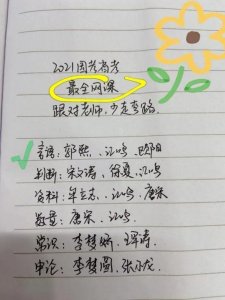 2021国考省考
最全网课
跟对老师,少走弯路.
言语: 郭熙、江鸣、欧阳
判断: 宋文涛、徐夏、江鸣
资料: 牟立志、江鸣、唐宋
数量: 唐宋、江鸣.
常识: 李梦娇、珲涛.
申论: 李梦圆、张小龙.